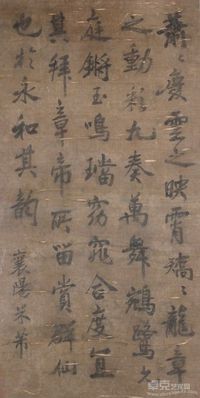 蕭〻慶雲之映霄矯〻龍章
之動彩九奏萬舞鵷鷺充
庭鏘玉鳴璫窈窕合度宜
其拜章帝所留賞群仙
也於永和其韵
襄陽米芾
卓克艺术网